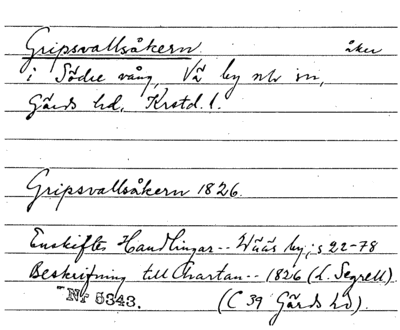 Gripsvallsåkern åker
i Södre vång, Vä by och sn,
Gärds hd, Krstd. l.
Gripsvallsåkern 1826.
Enskiftes Handlingar -- Wääs by, s 22-78
Beskrifning till Chartan -- 1826 (d. Segrell)
Nr 5343. (C 39 Gärds hd).